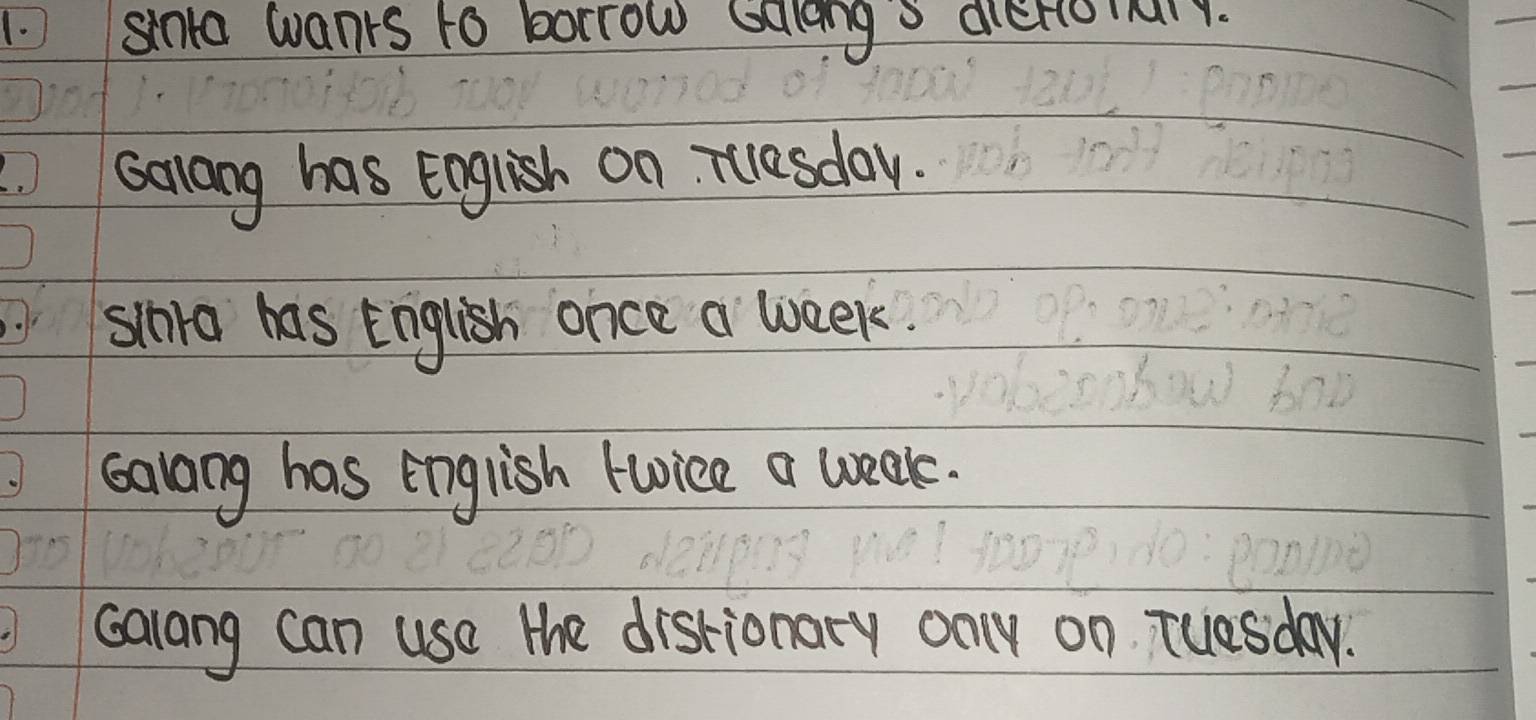 1. Sinta wants to borrow Galang's dictionary.
2. Galang has English on Tuesday.
Sinta has English once a week.
Galang has English twice a weak.
Galang can use the distionary only on Tuesday.